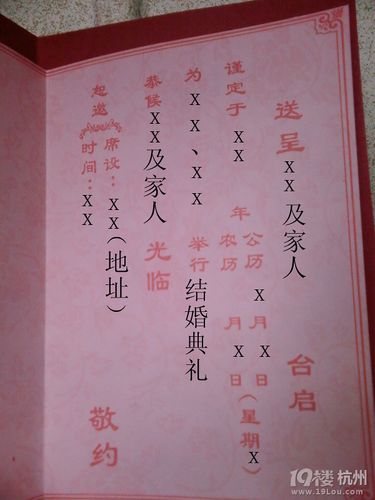 送呈xx及家人台启
谨定于xx年公历x月x日(星期x
农历x月x日
为xx、xx举行结婚典礼
恭候xx及家人光临
恕邀
席设：xx(地址)
时间：xx
敬约
19楼杭州
www.19Lou.com